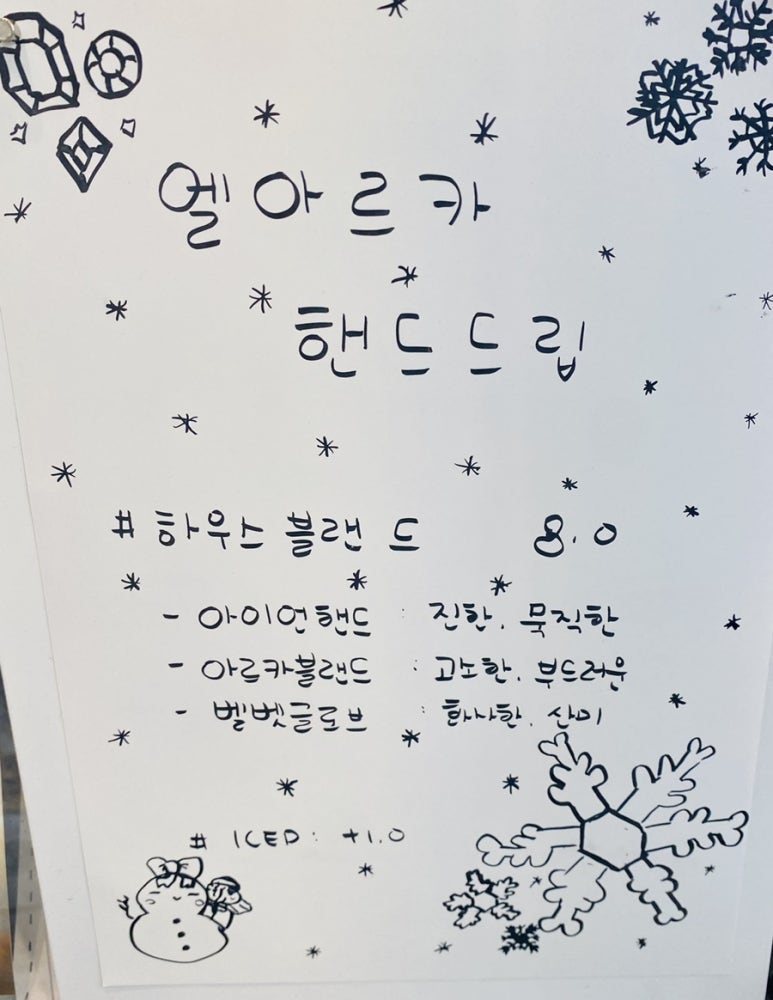 엘아르카
핸드드립
# 하우스블랜드 8.0
- 아이언핸드 : 진한. 묵직한
- 아르카블랜드 : 고소한. 부드러운
- 벨벳글로브 : 화사한. 산미
# ICED : +1.0